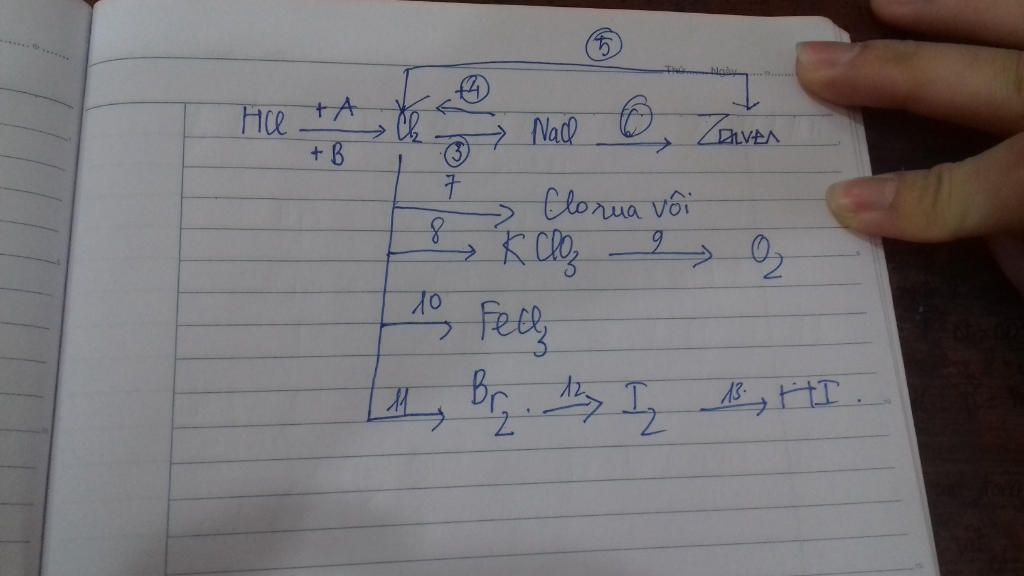 5
Thứ Ngày
+ A +4
HCl Cl2 NaCl 6 Zaven
+ B 3
7 Clorua vôi
8 KClO3 9 O2
10 FeCl3
11 Br2 . 12 I2 13. HI .